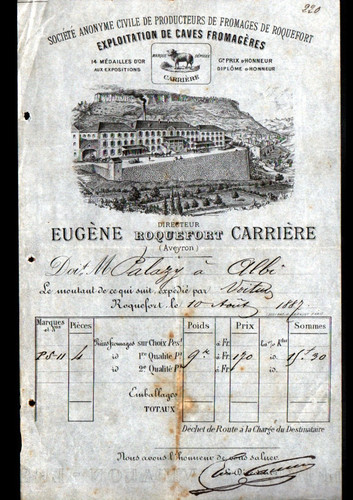 220
SOCIÉTÉ ANONYME CIVILE DE PRODUCTEURS DE FROMAGES DE ROQUEFORT
EXPLOITATION DE CAVES FROMAGÈRES
14 MÉDAILLES D'OR
AUX EXPOSITIONS
MARQUE DÉPOSÉE
CARRIÈRE
Gds PRIX D'HONNEUR
DIPLÔME D'HONNEUR
DIRECTEUR
EUGÈNE ROQUEFORT CARRIÈRE
(Aveyron)
Doit M Palazy à Albi
Le montant de ce qui suit, Expédié par Voiture
Roquefort, le 10 Août 1887
Marques et Nos Pièces Poids Prix Sommes
PS 11 4 Pains fromages sur Choix Pes à Fr
id 1re Qualité Ps 9k à Fr 170 id 15f 30
id 2e Qualité Ps à Fr id
Emballages
TOTAUX
Déchet de Route à la Charge du Destinataire
Nous avons l'honneur de vous saluer.